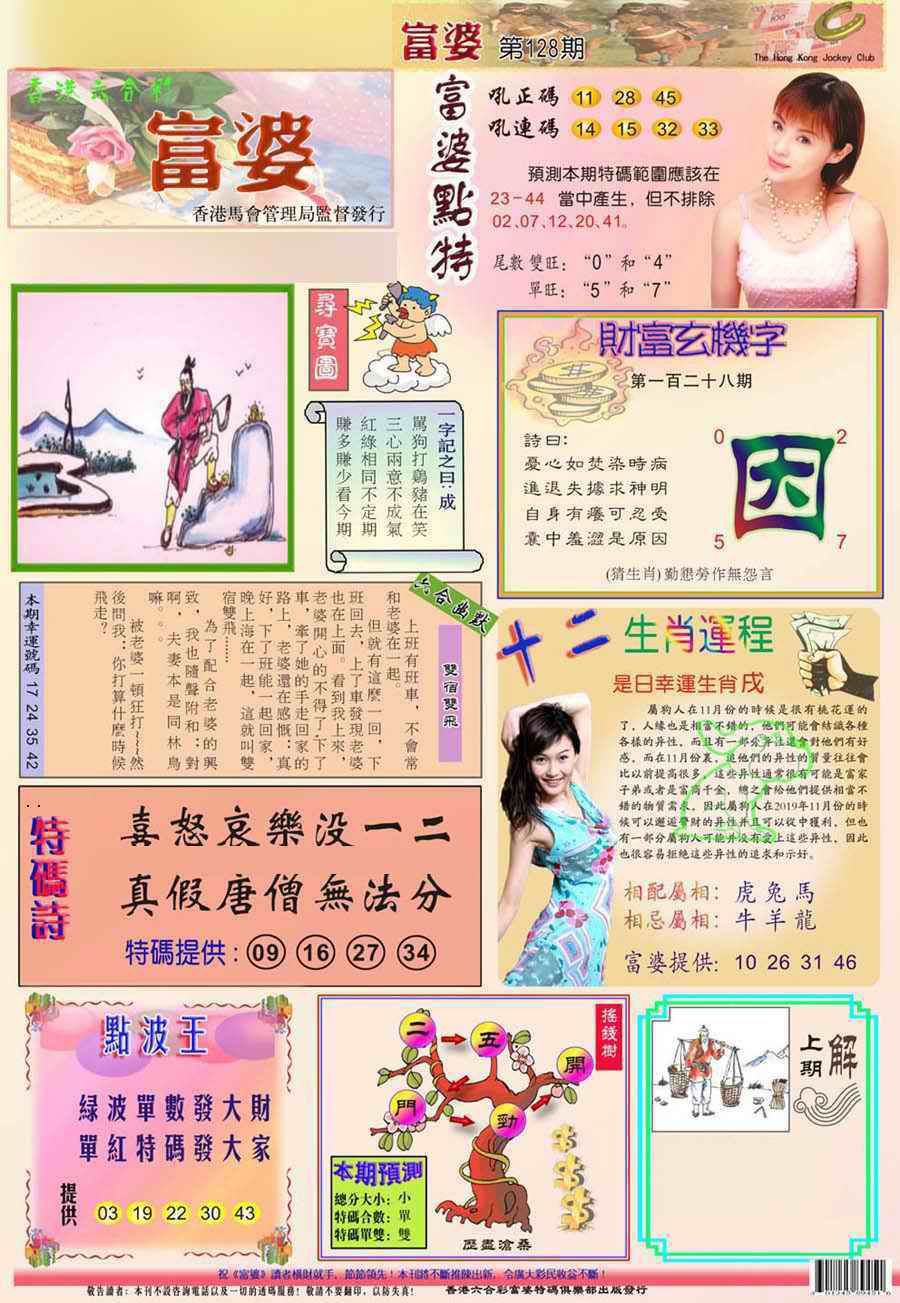 富婆 第128期
The Hong Kong Jockey Club
香港六合彩
富婆
香港馬會管理局監督發行
富婆點特
吼正碼 11 28 45
吼連碼 14 15 32 33
預測本期特碼範圍應該在
23-44 當中產生，但不排除
02、07、12、20、41。
尾數雙旺：“0”和“4”
單旺：“5”和“7”
尋寶圖
一字記之曰：成
罵狗打鷄豬在笑
三心兩意不成氣
紅綠相同不定期
賺多賺少看今期
財富玄機字
第一百二十八期
詩曰：
憂心如焚染時病
進退失據求神明
自身有癢可忍受
囊中羞澀是原因
0 2
因
5 7
(猜生肖)勤懇勞作無怨言
六合幽默
雙宿雙飛
上班有班車，不會常
和老婆在一起。
但就有這麼一回，下
班回去，上了車發現老婆
也在上面。看到我上來，
老婆開心的不得了，下了
車，牽了她的手走回家的
路上，老婆還在感慨：真
好，下了班能一起回家，
晚上海在一起，這就叫雙
宿雙飛……
為了配合老婆的興
致，我也隨聲附和：對
啊，夫妻本是同林鳥
嘛。。
被老婆一頓狂打~~~然
後問我：你打算什麼時候
飛走？
本期幸運號碼 17 24 35 42
十二生肖運程
是日幸運生肖戌
屬狗人在11月份的時候是很有桃花運的
了，人緣也是相當不錯的，他們可能會結識各種
各樣的异性，而且有一部分异性還會對他們有好
感，而在11月份裏，追他們的异性的質量往往會
比以前提高很多，這些异性通常很有可能是富家
子弟或者是富商千金，總之會給他們提供相當不
錯的物質需求，因此屬狗人在2019年11月份的時
候可以邂逅多財的异性并且可以從中獲利，但也
有一部分屬狗人可能并没有愛上這些异性，因此
也很容易拒絶這些异性的追求和示好。
相配屬相：虎兔馬
相忌屬相：牛羊龍
富婆提供：10 26 31 46
特碼詩
喜怒哀樂没一二
真假唐僧無法分
特碼提供：09 16 27 34
點波王
緑波單數發大財
單紅特碼發大家
提供 03 19 22 30 43
搖錢樹
二 五 開
門 勁
本期預測
總分大小：小
特碼合數：單
特碼單雙：雙
歷盡滄桑
上期解
祝《富婆》讀者横財就手，節節領先！本刊將不斷推陳出新，令廣大彩民收益不斷！
敬告讀者：本刊不設咨詢電話以及一切的透碼服務！敬請不要翻印，以防失真！ 香港六合彩富婆特碼俱樂部出版發行